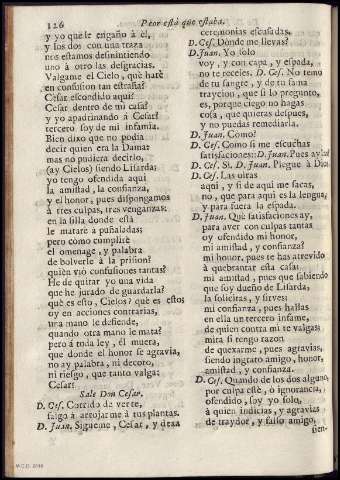 126
Peor está que estaba.
y yo que le engaño à él,
y los dos con una traza
nos estamos desmintiendo
uno à otro las desgracias.
Valgame el Cielo, què harè
en confusion tan estraña?
Cesar escondido aqui?
Cesar dentro de mi casa?
y yo apadrinando à Cesar?
tercero soy de mi infamia.
Bien dixo que no podia
decir quien era la Dama:
mas no pudiera decirlo,
(ay Cielos) siendo Lisarda;
yo tengo ofendida aqui
la amistad, la confianza,
y el honor, pues dispongamos
à tres culpas, tres venganzas:
en la silla donde està
le matarè à puñaladas;
pero còmo cumplirè
el omenage, y palabra
de bolverle à la prision?
quièn viò confusiones tantas?
He de quitar yo una vida
que he jurado de guardarla?
què es esto, Cielos? què es esto?
oy en acciones contrarias,
una mano le defiende,
quando otra mano le mata?
pero à toda ley, èl muera,
que donde el honor se agravia,
no ay palabra, ni decoro,
ni riesgo, que tanto valga:
Cesar?
Sale Don Cesar.
D. Ces. Corrido de verte,
salgo à arrojarme à tus plantas.
D. Juan. Sigueme, Cesar, y dexa
ceremonias escusadas.
D. Ces. Dònde me llevas?
D. Juan. Yo solo
voy, y con capa, y espada,
no te receles. D. Ces. No temo
de tu sangre, y de tu fama
traycion, que si lo pregunto,
es, porque ciego no hagas
cosa, que quieras despues,
y no puedas remediarla.
D. Juan. Como?
D. Ces. Como si me escuchas
satisfaciones: D. Juan. Pues ay
D. Ces. Si. D. Juan. Plegue à Dios
D. Ces. Las otras
aqui, y si de aqui me sacas,
no, que para aqui es la lengua,
y para fuera la espada.
D. Juan. Què satisfaciones ay,
para aver con culpas tantas
oy ofendido mi honor,
mi amistad, y confianza?
mi honor, pues te has atrevido
à quebrantar esta casa:
mi amistad, pues que sabiendo
que soy dueño de Lisarda,
la solicitas, y sirves:
mi confianza, pues hallas
en ella un tercero infame,
de quien contra mi te valgas;
mira si tengo razon
de quexarme, pues agravias,
siendo ingrato amigo, honor,
amistad, y confianza.
D. Ces. Quando de los dos alguno,
por culpa estè, ò ignorancia,
ofendido, soy yo solo,
à quien indicias, y agravias
de traydor, y falso amigo,
sien-